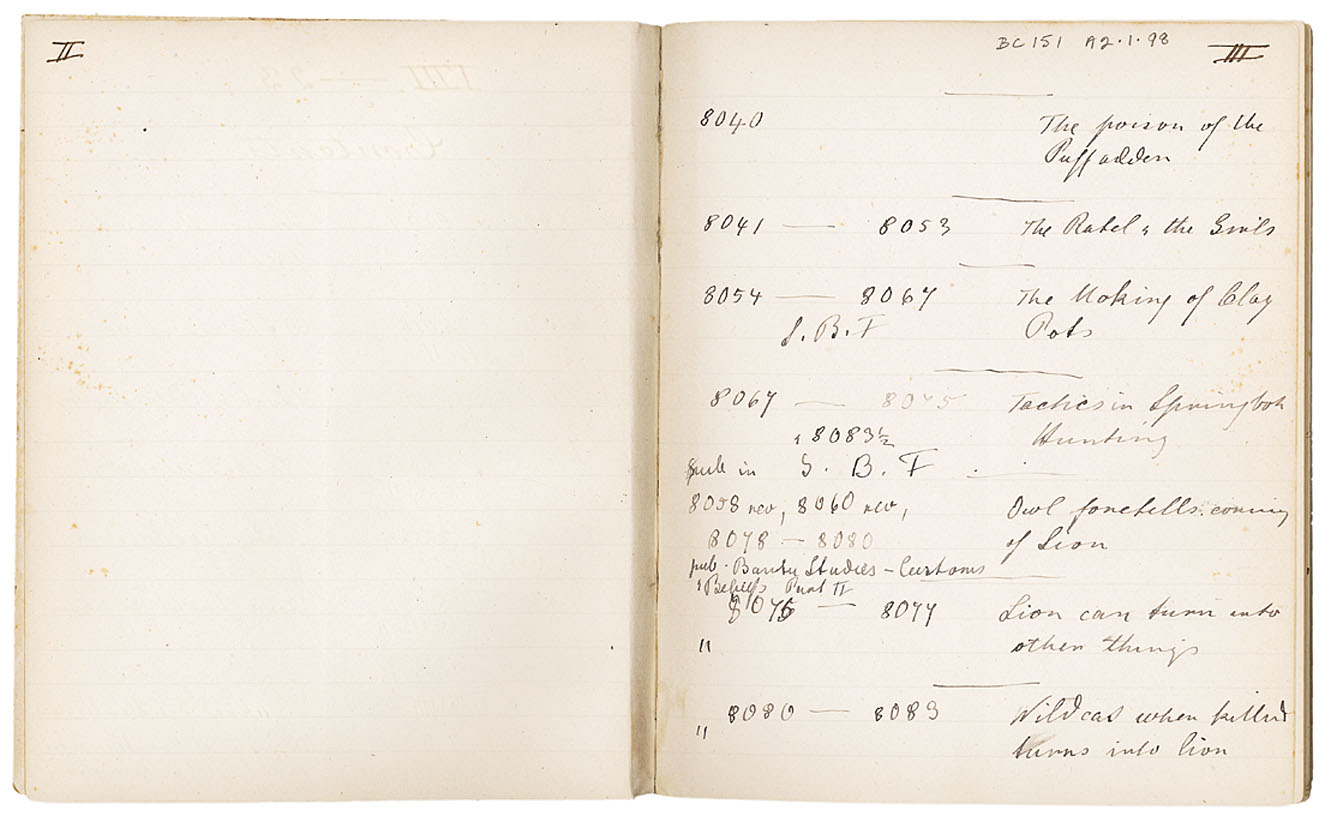 II
BC151 A2.1.98
III
8040 The poison of the
Puffadder
8041 — 8053 The Ratel & the Girls
8054 — 8067 The Making of Clay
S.B.F Pots
8067 — 8075 Tactics in Springbok
& 8083½ Hunting
pub in S. B. F
8058 rev, 8060 rev, Owl foretells coming
8078 — 8080 of Lion
pub. Bantu Studies — Customs
& Beliefs Part II
8076 — 8077 Lion can turn into
" other things
8080 — 8083 Wildcat when killed
" turns into lion